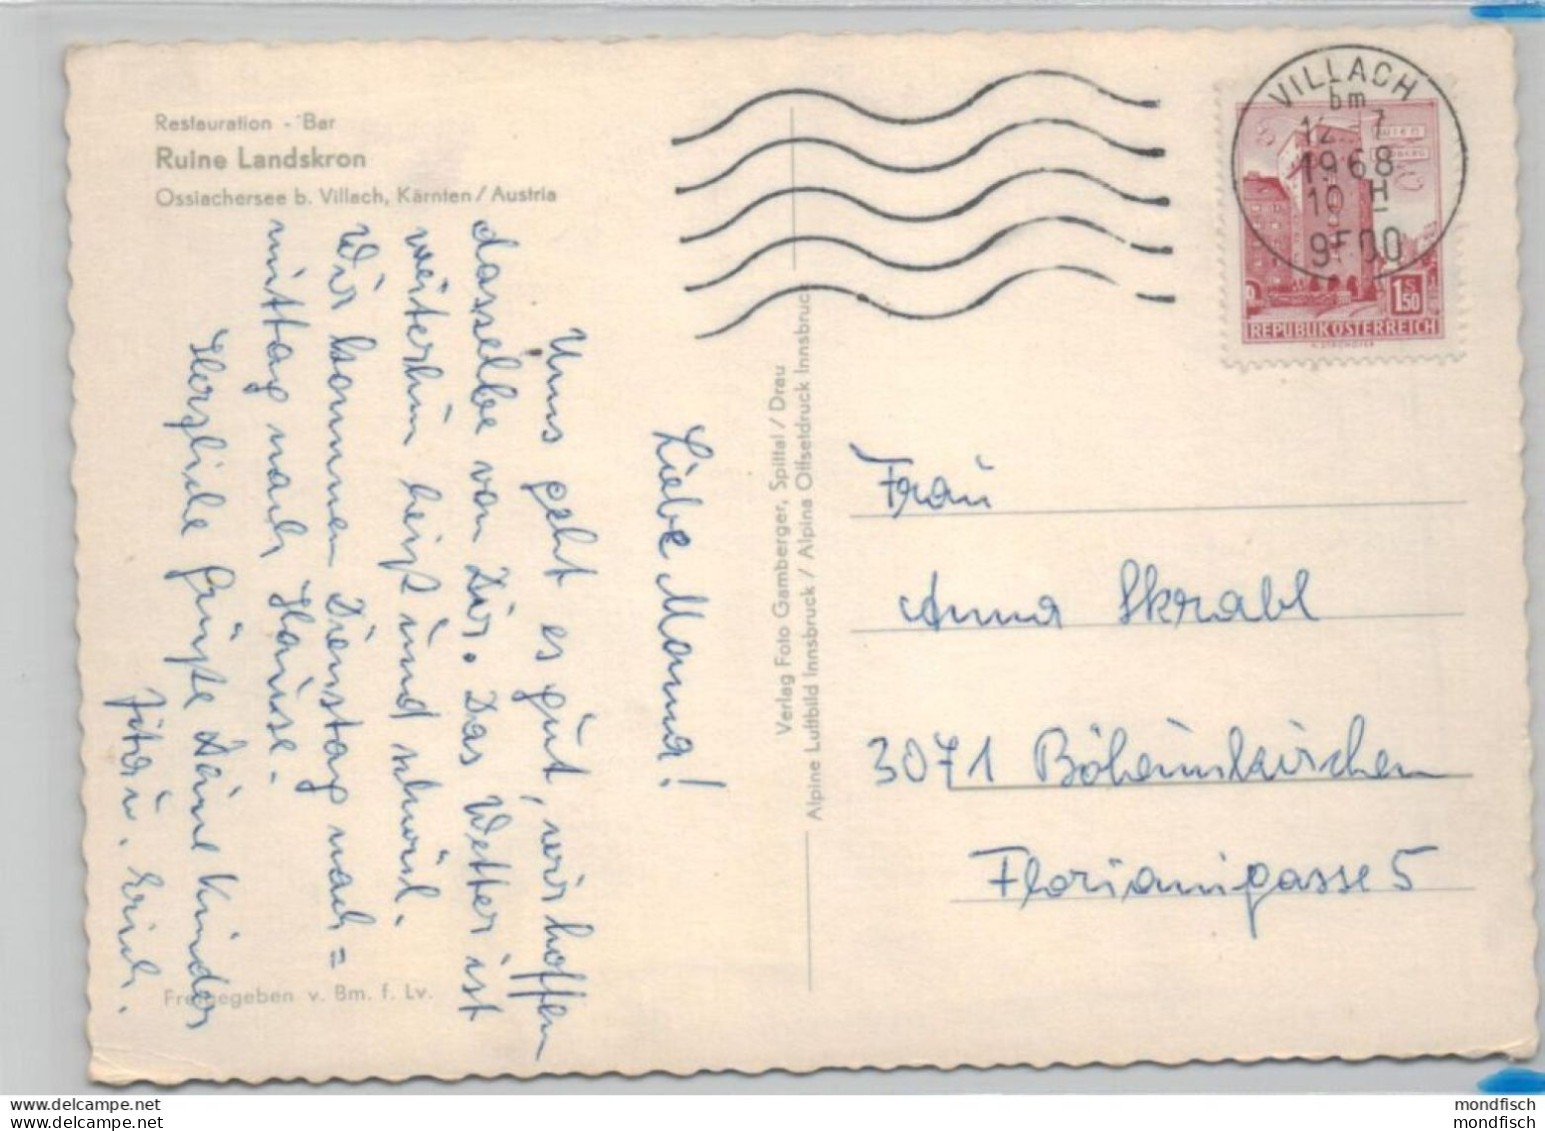 Restauration - Bar
Ruine Landskron
Ossiachersee b. Villach, Kärnten/Austria
Liebe Mama!
Uns geht es gut, wir hoffen
dasselbe von Dir. Das Wetter ist
weiterhin heiß und schwül.
Wir kommen Dienstag nach=
mittag nach Hause.
Herzliche Grüße Deine Kinder
u. Erich.
Freigegeben v. Bm. f. Lv.
Verlag Foto Gamberger, Spittal / Drau
Alpine Luftbild Innsbruck / Alpina Offsetdruck Innsbruck
VILLACH
bm
12. 7
1968
10 H
9500
WIEN
1.50
S
REPUBLIK ÖSTERREICH
Frau
Anna Skrabl
3071 Böheimkirchen
Florianigasse 5
delcampe.net
delcampe.net
mondfisch
mondfisch